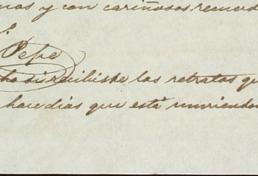 y con cariñosos recuerd
Pepe
si recibiste los retratos qu
hace dias que está